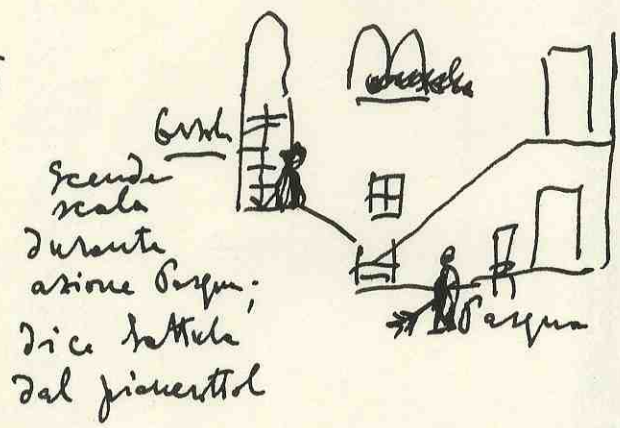 Orsola
Scende
scala
durante
azione Pasqua;
dice battuta
dal pianerottol
Pasqua